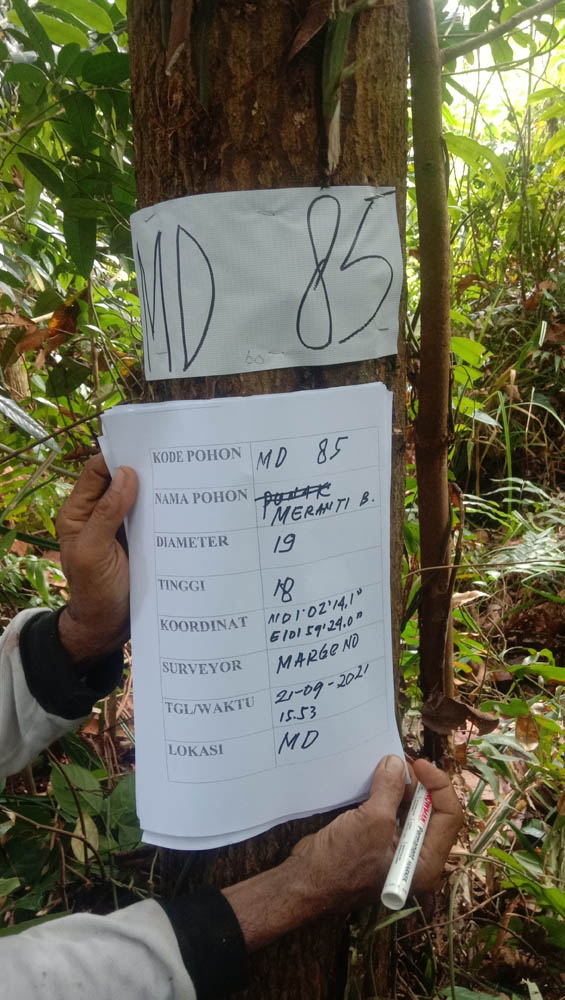 MD 85
KODE POHON MD 85
NAMA POHON MERANTI B.
DIAMETER 19
TINGGI 18
KOORDINAT N01°02'14,1"
E101°59'29.0"
SURVEYOR MARGONO
TGL/WAKTU 21-09-2021
15.53
LOKASI MD